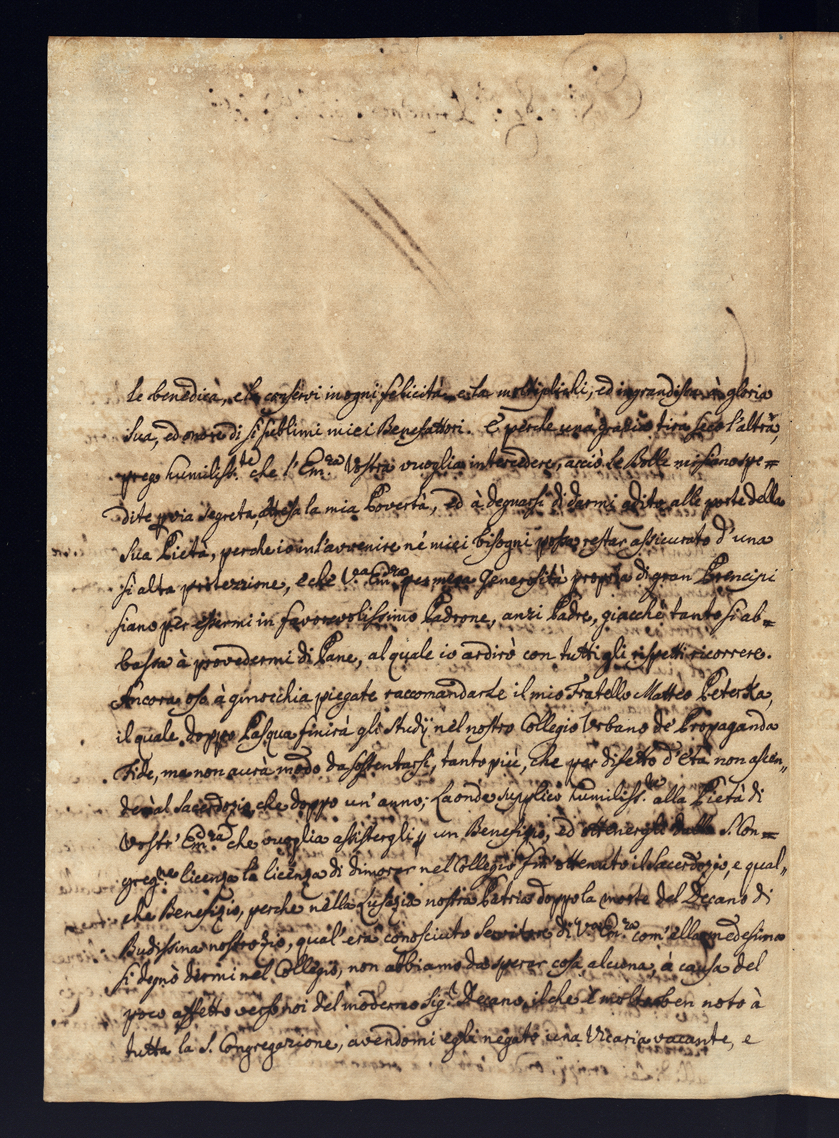 le benedica, e la conservi in ogni felicità, e la moltiplichi, ed ingrandisca à gloria
sua, ed onore di sì sublimi miei Benefattori. E perche una grazia tira seco l'altra,
prego humiliss.te che l'Em.za Vostra vuoglia intercedere, acciò le Bolle mi siano spe=
dite p via segreta, attesa la mia Povertà, ed à degnarsi di darmi adito alle porte della
sua Pietà, perche io in l'avvenire né miei bisogni possa restar assicurato d'una
sì alta protezzione, e che V.a Em.za per mera Generosità propria di gran Prencipi
siano per essermi in favorevolissimo Padrone, anzi Padre, giacchè tanto si ab=
bassa à provedermi di Pane, al quale io ardirò con tutti gli rispetti ricorrere.
Ancora oso à ginocchia piegate raccomandarLe il mio Fratello Matteo Peterka,
il quale doppo Pasqua finirà gli Studij nel nostro Collegio Urbano de Propaganda
Fide, ma non aurà modo da sostentarsi, tanto più, che per difetto d'età non ascen=
derà al Sacerdozio, che doppo un'anno; Laonde supplico humiliss.te alla Pietà di
Vostr' Em.za che vuoglia assistergli p un Benefizio, ed ottenergli dalla S. Con=
greg.ne licenza la licenza di dimorar nel Collegio fin' ottenuto il Sacerdozio, e qual=
che Benefizio, perche nella Lusazia nostra Patria doppo la morte del Decano di
Budissina nostro Zio, qual'era conosciuto Servitore di V.a Em.za com'ella medesima
si degnò dirmi nel Collegio, non abbiamo da sperar cosa alcuna, à causa del
poco affetto verso noi del moderno Sig.r Decano, il che è molto ben noto à
tutta la S. Congregazione, avendomi egli negato una Vicaria vacante, e